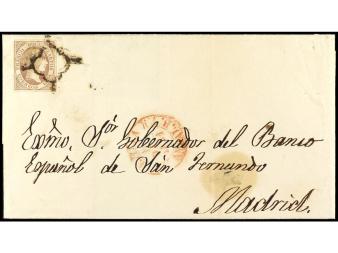 Exmo. Sór. Gobernador del Banco
Español de Sán Fernando
Madrid.